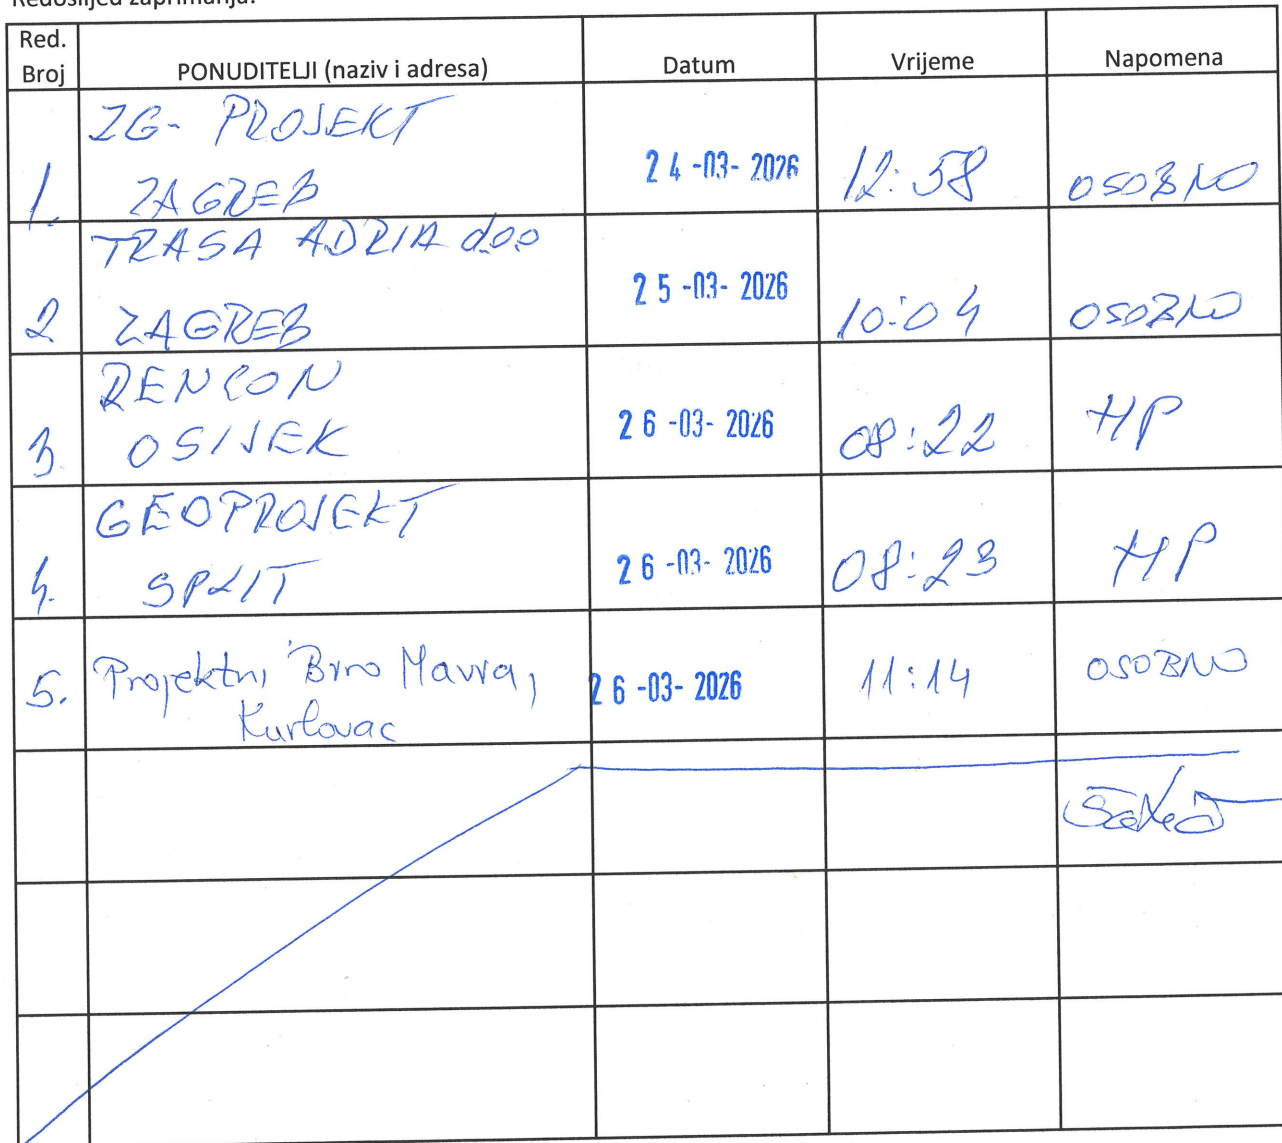 Redoslijed zaprimanja:
Red. Broj PONUDITELJI (naziv i adresa) Datum Vrijeme Napomena
ZG- PROJEKT
1. ZAGREB 24-03-2026 12:58 OSOBNO
TRASA ADRIA doo
2 ZAGREB 25-03-2026 10:04 OSOBNO
RENCON
3. OSIJEK 26-03-2026 08:22 HP
GEOPROJEKT
4. SPLIT 26-03-2026 08:23 HP
5. Projektni Biro Mavra, 26-03-2026 11:14 OSOBNO
Karlovac